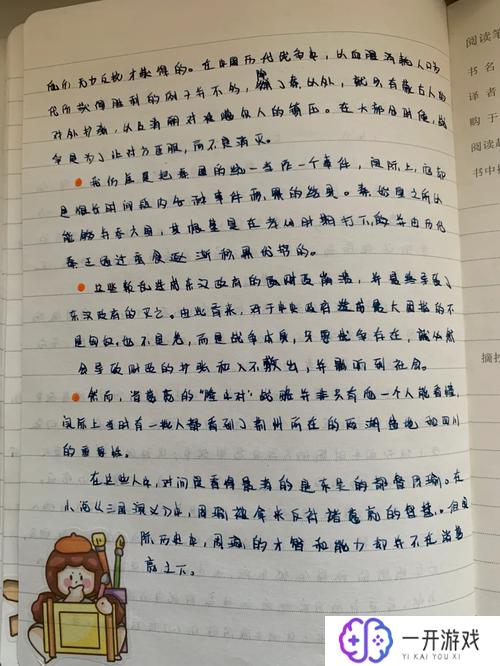 他们无力反抗才取得的。在中国历代战争中,以血洗消耗人口为
代价取得胜利的例子并不的,除了秦以外,就只有蒙古人的
对外扩张,以及满朝对被征服人的镇压。在大部分时候,战
争是为了让对方臣服,而不是消灭。
我们总是把秦国的统一当作一个事件,实际上,它却
是很长时间段内各种事件累积的结果。秦始皇之所以
能够吞并六国,其根基是在孝公时期打下的,并由历代
秦王通过蚕食逐渐积累优势的。
这些叛乱造成东汉政府的财政崩溃,并最终导致了
东汉政府的灭亡。由此看来,对于中央政府造成最大困扰的不
是匈奴,也不是羌,而是战争成本,只要战争存在,就必然
会导致财政的扩张和入不敷出,并影响到社会。
然而,诸葛亮的"隆中对"战略并非只有他一个人能看懂,
实际上当时有一批人都看到了荆州所在的两湖盆地和四川
的重要性。
在这些人中,对问题看得最清的是东吴的都督周瑜。在
小说《三国演义》中,周瑜被拿来反衬诸葛亮的智慧。但实
际历史中,周瑜的才智和能力却并不在诸葛
亮之下。
阅读笔
书名
译者
购于
阅读起
书中摘
摘抄
一开游戏
YI KAI YOU XI